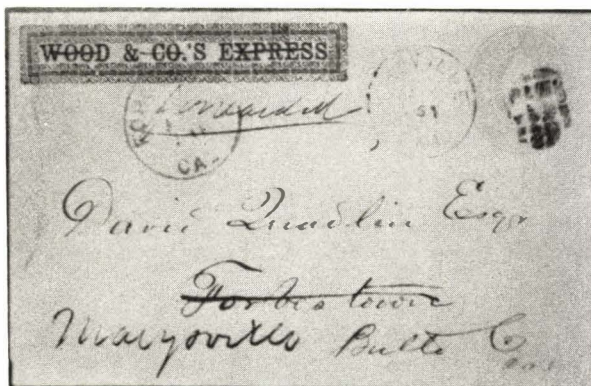 WOOD & CO.'S EXPRESS
Forwarded
VILLE
51
CA.
David Quadlin Esqr
Forbestown
Marysville Butte Co